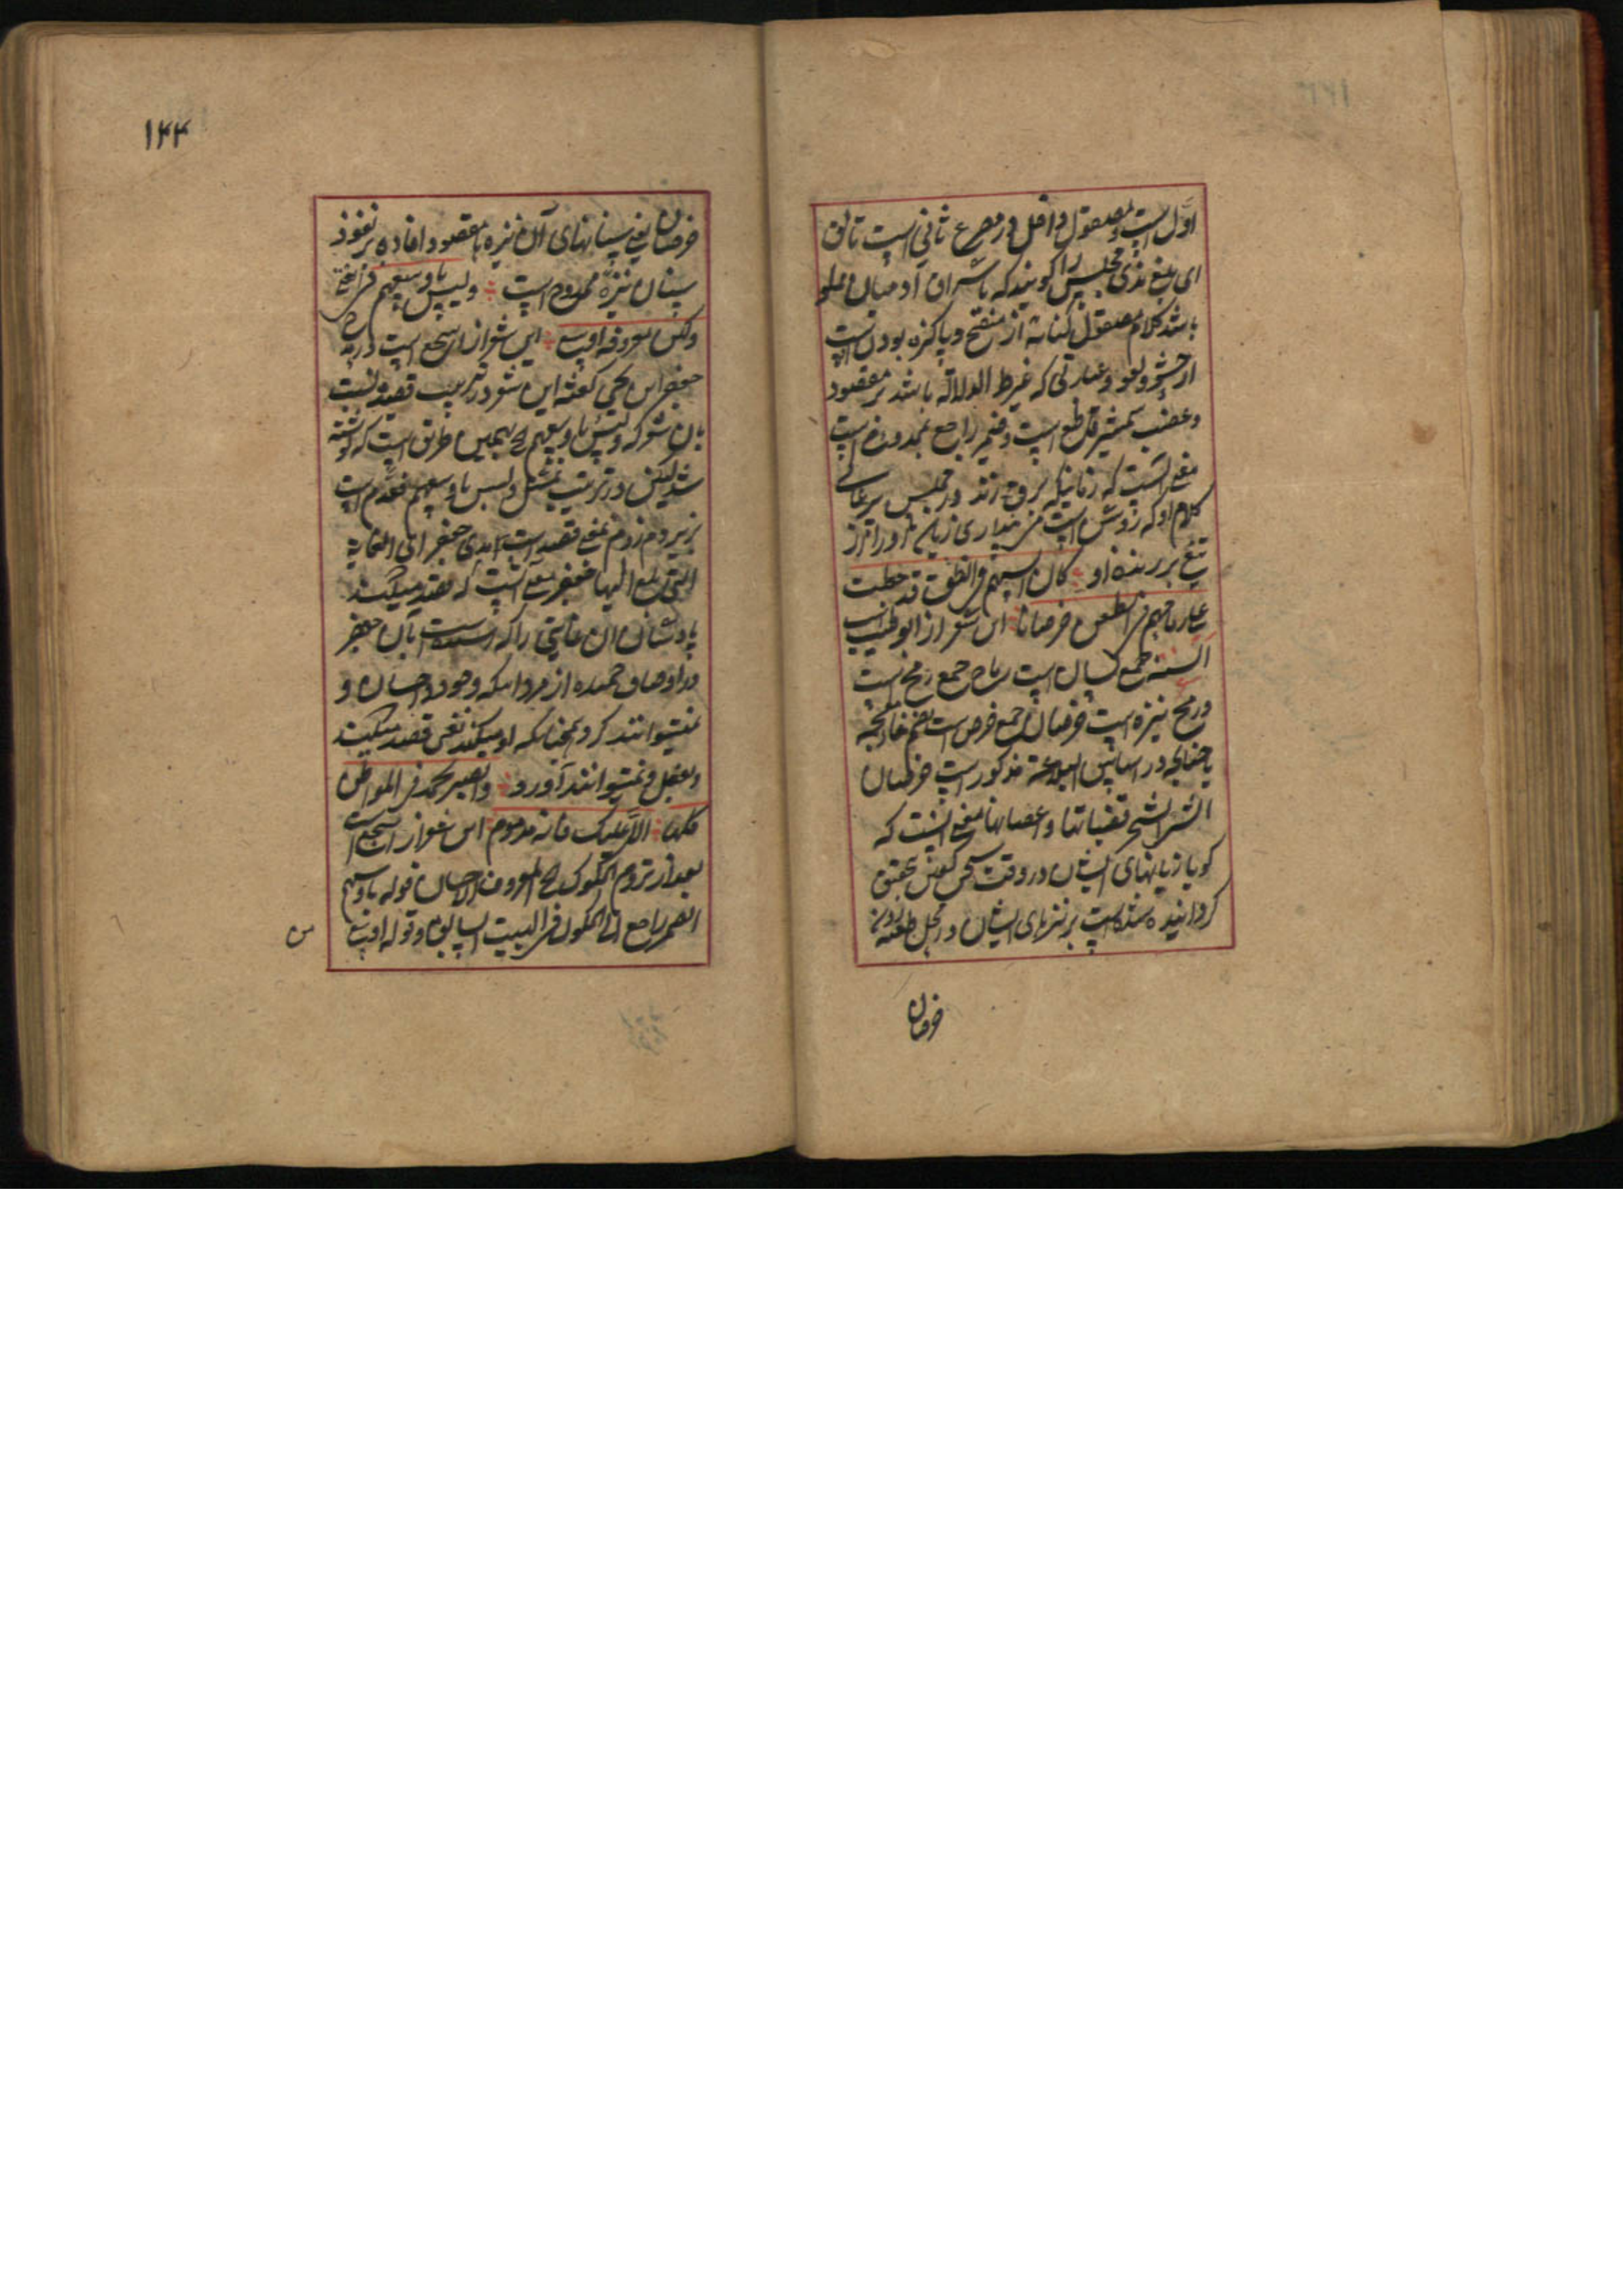 اول است و مصقول داخل در مصرع ثانی است تالق
ای بلغ ندی مجلس را گویند که باشراف آدمیان مملو
باشد کلام مصقول کنایه از منقح و پاکیزه بودن است
از حشو و لغو و عبارتی که غیر الدلالة باشد بر مقصود
و عضب شمشیر قاطع است و ضمیر راجع بممدوح است
معنی آنست که زمانیکه برق زند در مجلس
کلام او که روشن است می پنداری زبان او را از
تیغ برنده او کان السنهم فی النطق قد جعلت
علی رماحهم فی الطعن خرصانا این شعر از ابو طیب است
السنة جمع لسان است رماح جمع رمح است
و رمح نیزه است خرصان جمع خرص است بضم خاء معجمه
چنانچه در اساس البلاغة مذکور است خرصان
قضبانها و اغصانها معنی آنست که
گویا زبانهای ایشان در وقت سخن گفتن تحقیق
گردانیده شده است بر نیزهای ایشان در محل طعنه زدن
خرصان
۱۴۴
خرصان یعنی سنانهای آن نیزه ها مقصود افاده بر نفوذ
سنان نیزه ممدوح است ولیس باوسعهم فی الغنی
ولکن معروفه اوسع این شعر از اشجع است در مدح
جعفر ابن یحیی گفته این شعر در ترتیب قصیده نسبت
بآن شعر که ولیس باوسعهم الخ بهمین طریق است که نوشته
شد لیکن در ترتیب تمثیل ولیس باوسعهم مقدم است
یروم روم بمعنی قصد است مدی جعفر ای الغایة
التی بلغ الیها جعفر معنی آنست که قصد میکنند
پادشاهان آن غایتی را که رسیده است بآن جعفر
در اوصاف حمیده از مردانگی وجود و احسان و
نمیتوانند کرد همچنانکه او میکند یعنی قصد میکنند
و بفعل نمیتوانند آورد والصبر یحمد فی المواطن
کلها الا علیک فانه مذموم این شعر از اشجع است
بعد از یروم الملوک الخ المعروف الاحسان قوله باوسعهم
الضمیر راجع الی الملوک فی البیت السابق و قوله اوسع